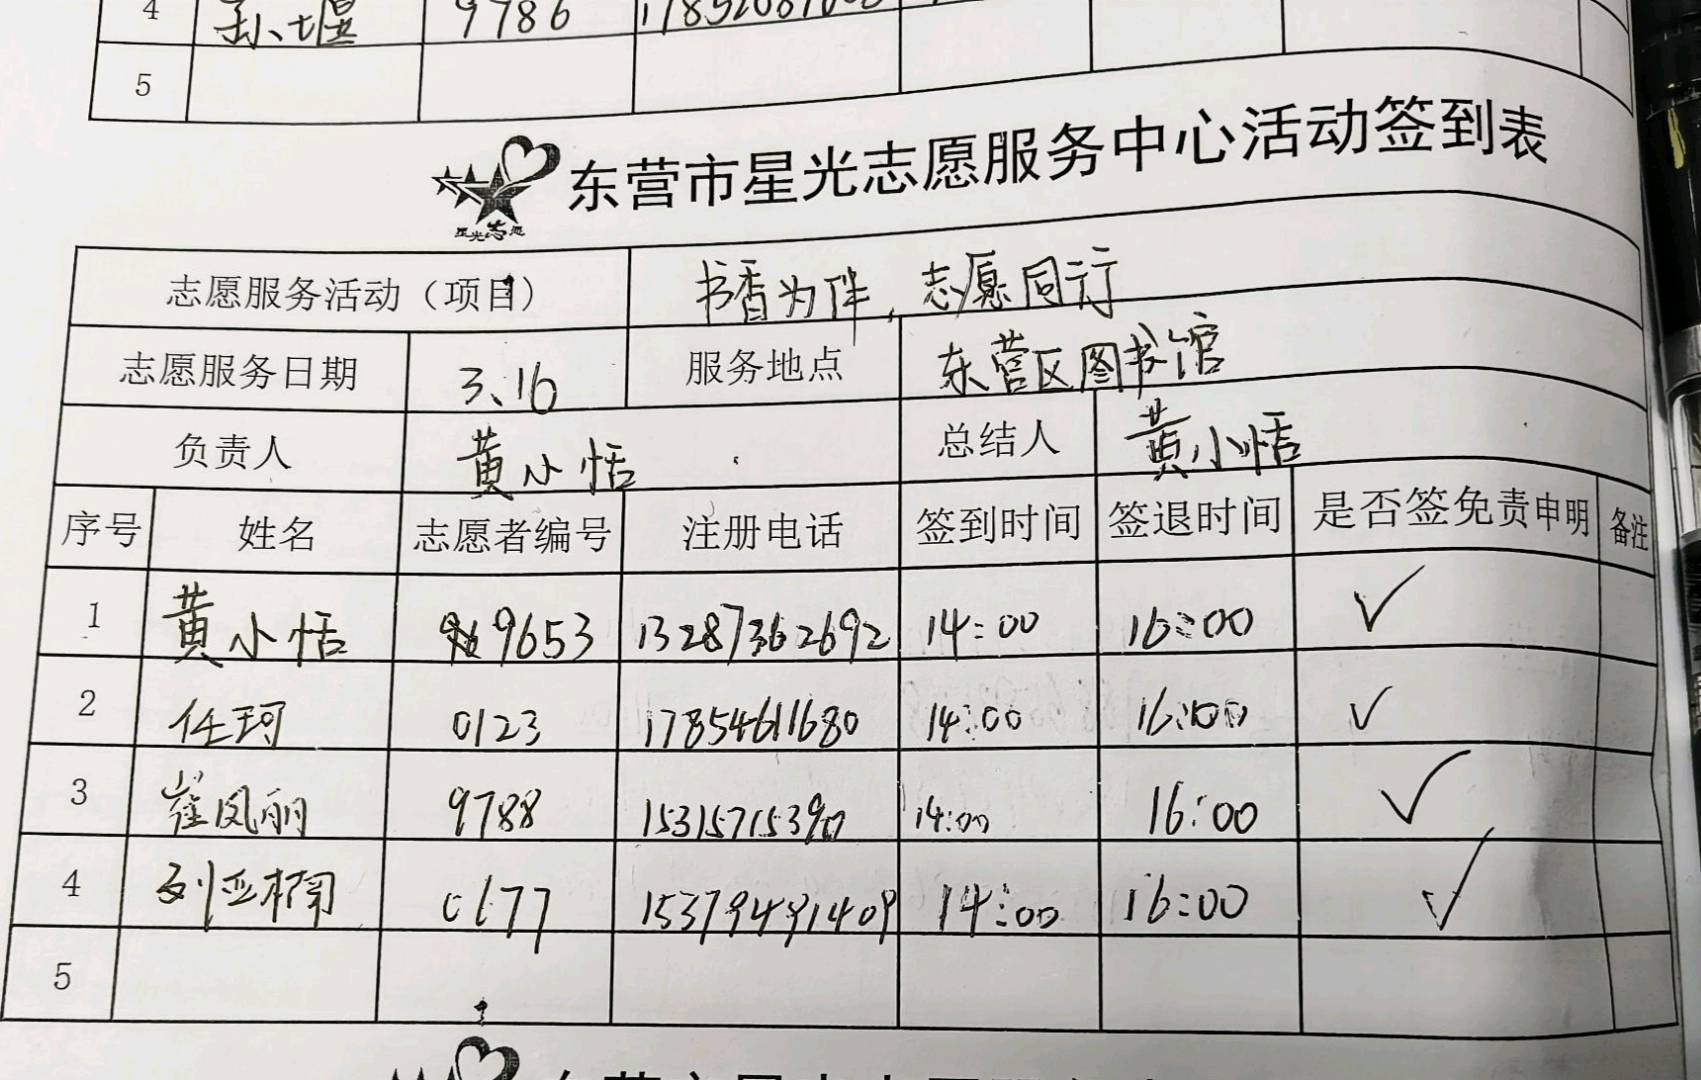 4 孙堰 9786
5
东营市星光志愿服务中心活动签到表
星光志愿
志愿服务活动（项目） 书香为伴，志愿同行
志愿服务日期 3.16 服务地点 东营区图书馆
负责人 黄小恬 总结人 黄小恬
序号 姓名 志愿者编号 注册电话 签到时间 签退时间 是否签免责申明 备注
1 黄小恬 9653 13287362692 14:00 16:00 ✓
2 任珂 0123 17854611680 14:00 16:00 ✓
3 崔凤丽 9788 15315715390 14:00 16:00 ✓
4 刘亚楠 0177 15379491409 14:00 16:00 ✓
5